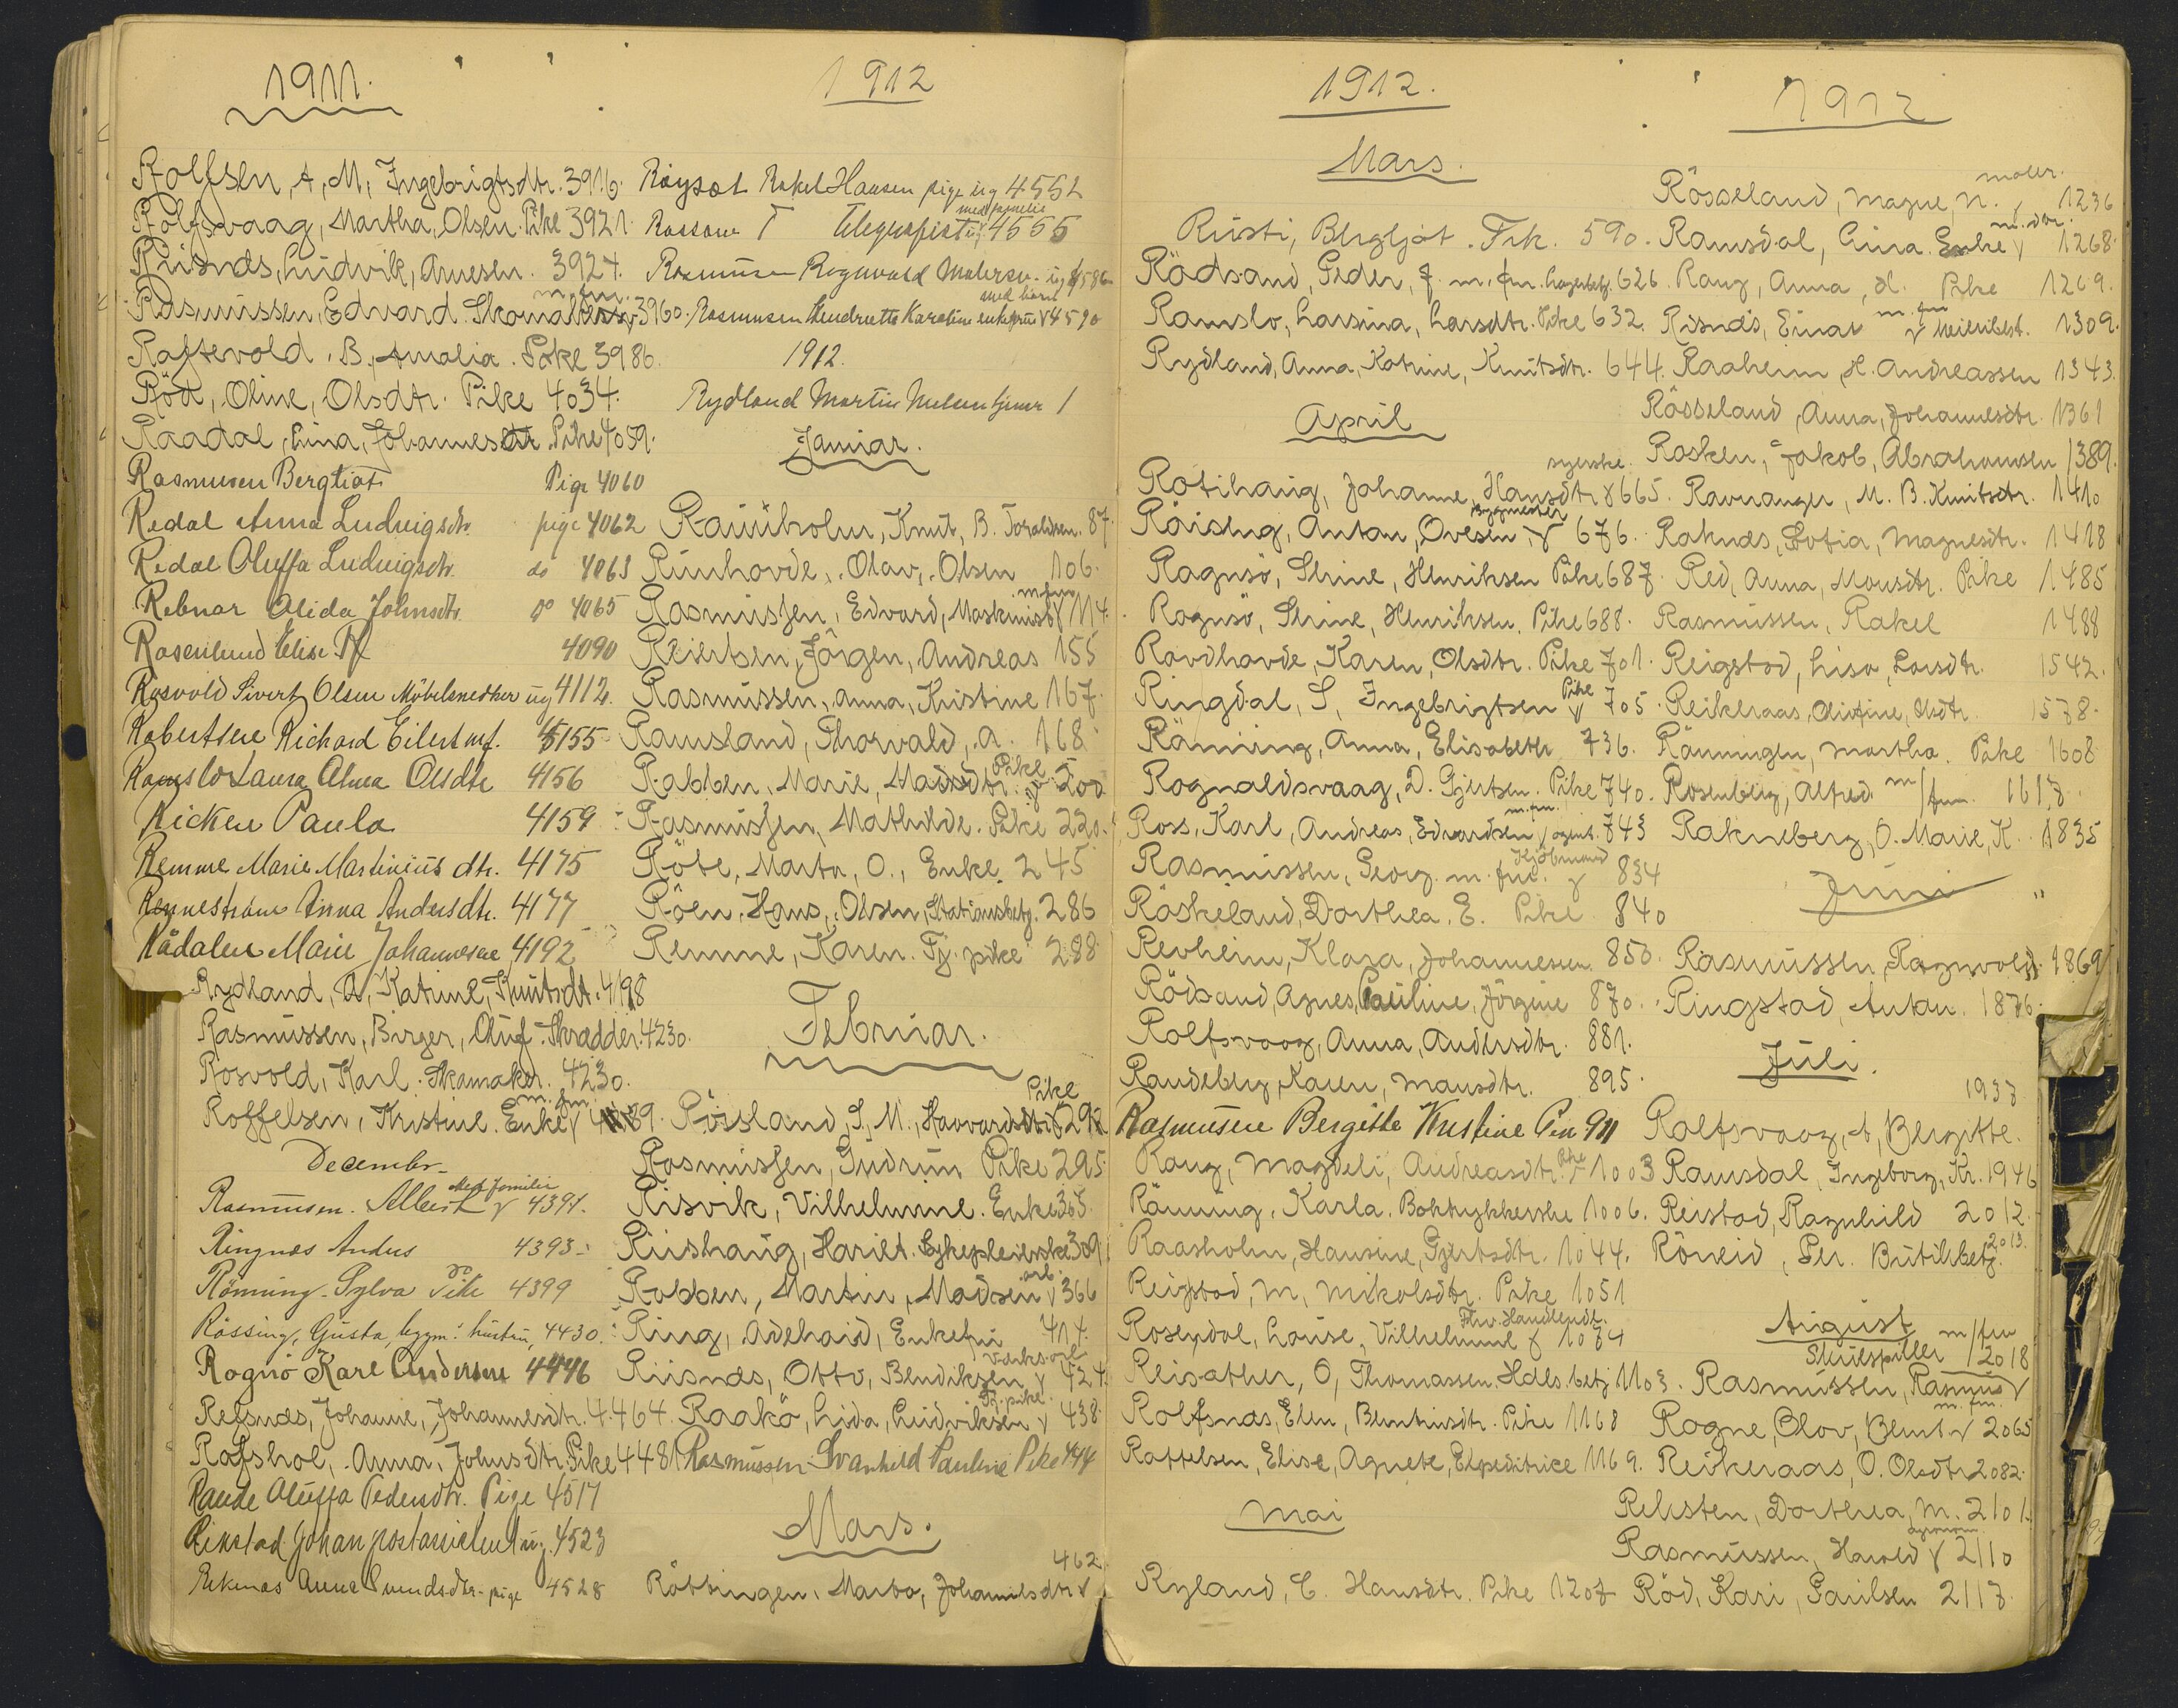 1911.
Rolfsen, A, M, Ingebrigtsdtr. 3916.
Rolfsvaag, Martha, Olsen. Pike 3921.
Risnes, Ludvik, Arnesen. 3924.
m. fm.
Rasmussen, Edvard. Skomaker 3960.
Raftevold. B. Amalia. Pike 3986.
Röd, Oline, Olsdtr. Pike 4034.
Raadal, Lina, Johannesdtr. Pike 4059.
Rasmusen Bergliot Pige 4060
Redal Anna Ludvigsdtr. pige 4062
Redal Oluffa Ludvigsdtr. do 4063
Rebnor Alida Johnsdtr. do 4065
Rosenlund Elise 4090
Rosvold Sivert Olsen Möbelsnedker ug 4112.
Robertsen Richard Eilert mf. 4155
Ramslo Laura Alma Olsdtr 4156
Ricken Paula 4159
Remme Marie Martinius dtr. 4175
Rennestraum Anna Andersdtr. 4177
Rådalen Marie Johannesen 4192
Rydland, A, Katrine, Knutsdt. 4198
Rasmussen, Birger, Oluf. Skrædder. 4230.
Rosvold, Karl. Skomaker. 4230.
m. fm.
Roffelsen, Kristine. Enke
Decembr.
Med familie
Rasmusen. Albert 4391.
Ringnes Andus 4393
Rönning. Sylva Pike 4399
Rössing, Gusta, bygm. hustru, 4430.
Rognö Karl Andersen 4446
Refsnes, Johanne, Johannesdtr. 4464.
Rofshol, Anna, Johnsdtr. Pike 4481
Rande Oluffa Pedersdtr. Pige 4517
Rikstad Johan postassistent ug. 4523
Reknes Anna Svendsdtr. pige 4528
1912
Röysot Rakel Hansen pige ug 4552
med familie
Rossow T Telegrafist 4555
Rasmusen Ragnvald Malersv. ug 4586
med barn
Rasmusen Hendrette Karoline enkefrue 4590
1912.
Rydland Martin Nielsen tjener 1
Januar.
Rauüholm, Knut, B. Toraldsen. 87.
Runhovde, Olav, Olsen 106.
m fm
Rasmussen, Edvard, Maskinist 114.
Reiertsen, Jörgen, Andreas 155
Rasmussen, Anna, Kristine 167.
Ramsland, Thorvald, A. 168.
Pike
Rabben, Marie, Madsdtr. 200
Rasmussen, Mathilde. Pike 220.
Röte, Marta, O., Enke 245
Röen, Hans, Olsen, Stationsbetj. 286
Remme, Karen. Tj. pike 288
Februar.
Pike
Rösland, S, M., Havardsdtr 292
Rasmussen, Gudrun Pike 295
Risvik, Vilhelmine. Enke 305
Riishaug, Hariet. Sykepleierske 309
arb.
Robben, Martin, Madsen 366
Ring, Adehaid, Enkefru 414.
verks.arb
Riisnes, Otto, Bendiksen 424.
Tj. pike.
Raakö, Lida, Ludviksen 438.
Rasmussen Svanhild Pauline Pike 444
Mars.
462
Röttingen, Marta, Johannesdtr
1912.
Mars.
Risti, Bergljot. Frk. 590.
Rödsand, Peder, J. m. fm. Lagerbetj. 626.
Ramslo, Larsina, Larsdtr. Pike 632.
Rydland, Anna, Katrine, Knutsdtr. 644.
April
syerske
Rotihaug, Johanne, Hansdtr 665.
Bygmester
Röising, Anton, Ovesen 676.
Ragnsö, Stine, Henriksen Pike 687.
Rognsö, Stine, Henriksen. Pike 688.
Ravdhovde, Karen, Olsdtr. Pike 701.
Pike
Ringdal, S, Ingebrigtsen 705.
Rönning, Anna, Elisabeth 736.
Rognaldsvaag, D. Gjertsen. Pike 740.
m. fm.
Ross, Karl, Andreas, Edvardsen agent. 743
Kjöbmand
Rasmussen, Georg. m. fm. 834
Röskeland, Dorthea. E. Pike 840
Revheim, Klara, Johannessen. 850.
Rödsand, Agnes, Pauline, Jörgine 870.
Rolfsvaag, Anna, Andersdtr. 881.
Randeberg, Karen, Mansdtr. 895.
Rasmussen Bergitte Kristine Pin 911
Raug, Magdeli, Andreasdtr. Pike 1003
Rönning, Karla. Boktrykkerske 1006.
Raasholm, Hansine, Gjertsdtr. 1044.
Reigstad, M, Nikolsdtr. Pike 1051
Fhv. Handlendl.
Rosendal, Louise, Vilhelmine 1084
Reisæther, O, Thomassen. Hdls. betj 1103.
Rolfsnes, Elen, Berntinsdtr. Pike 1168
Roffelsen, Elise, Agnete, Expeditrice 1169.
Mai
Ryland, C. Hansdtr. Pike 1207
1912
maler.
Rösseland, Magne, N. 1236
m. dtr.
Ramsdal, Lina. Enke 1268.
Raug, Anna, H. Pike 1269.
m. fm
Risnes, Einar Meieribest. 1309.
Raaheim, H. Andreassen 1343.
Rösseland, Anna, Johannesdtr. 1361
Rosken, Jakob, Abrahamsen 1389.
Ravnanger, M. B. Knutsdtr. 1410
Raknes, Sofia, Magnesdtr. 1418
Red, Anna, Monsdtr. Pike 1485
Rasmussen, Rakel 1488
Reigstad, Lisa, Larsdtr. 1542.
Reikeraas, Olivine, Olsdtr. 1578.
Rönningen, Martha. Pike 1608
Rosenberg, Alfred m/fm. 1617.
Rakneberg, O. Marie, K. 1835
Juni
Rasmussen, Ragnvold. 1869
Ringstad, Anton. 1876.
Juli.
1937
Rolfsvaag, A, Bergitte.
Ramsdal, Ingeborg, Kr. 1946
Reistad, Ragnhild 2012.
2013.
Röneid, Per. Butikbetj.
August
m/fm
Skuespiller 2018
Rasmussen, Rasmus
m. fm.
Rogne, Olov, Bernt 2065
Reikeraas, O. Olsdtr 2082.
Reksten, Dorthea, M. 2101.
Rasmussen, Harold 2110
Röd, Kari, Paulsen 2117.